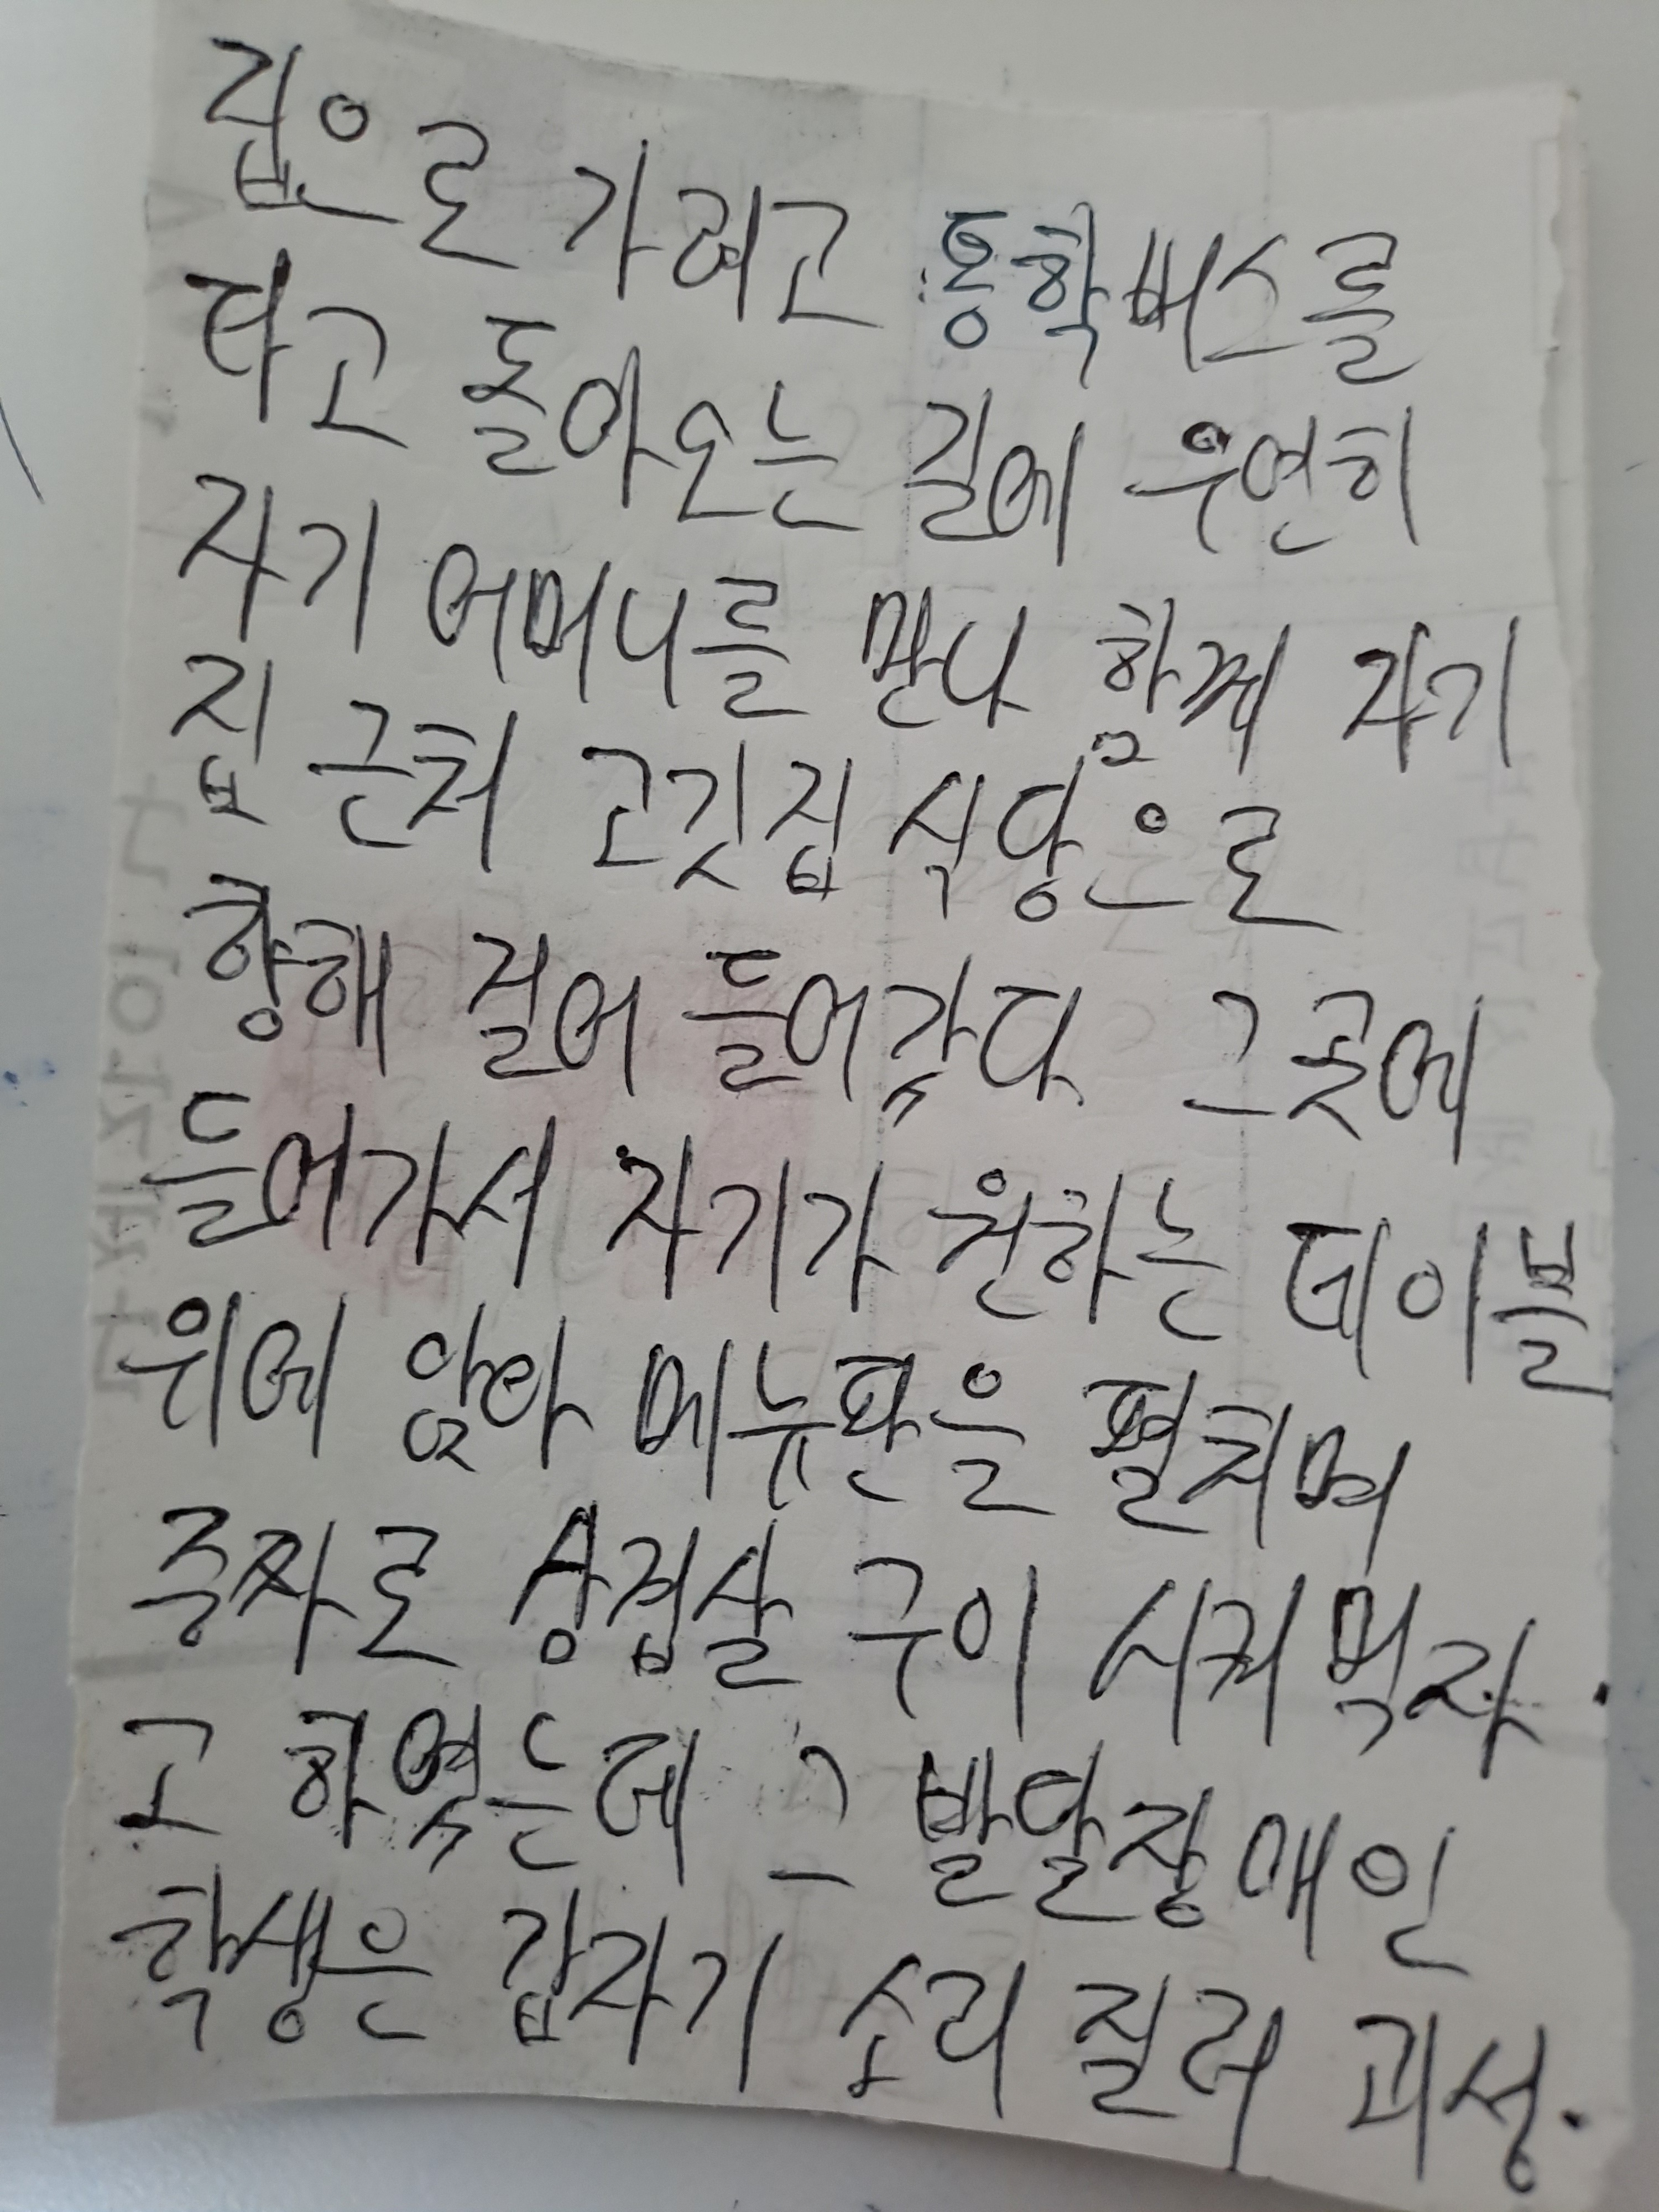 집으로 가려고 통학버스를
타고 돌아오는 길에 우연히
자기 어머니를 만나 함께 자기
집 근처 고깃집 식당으로
향해 걸어 들어갔다 그곳에
들어가서 자기가 원하는 테이블
위에 앉아 메뉴판을 펼치며
종자로 상겹살 구이 시켜먹자.
고 하였는데 그 발달장애인
학생은 갑자기 소리 질러 괴성.